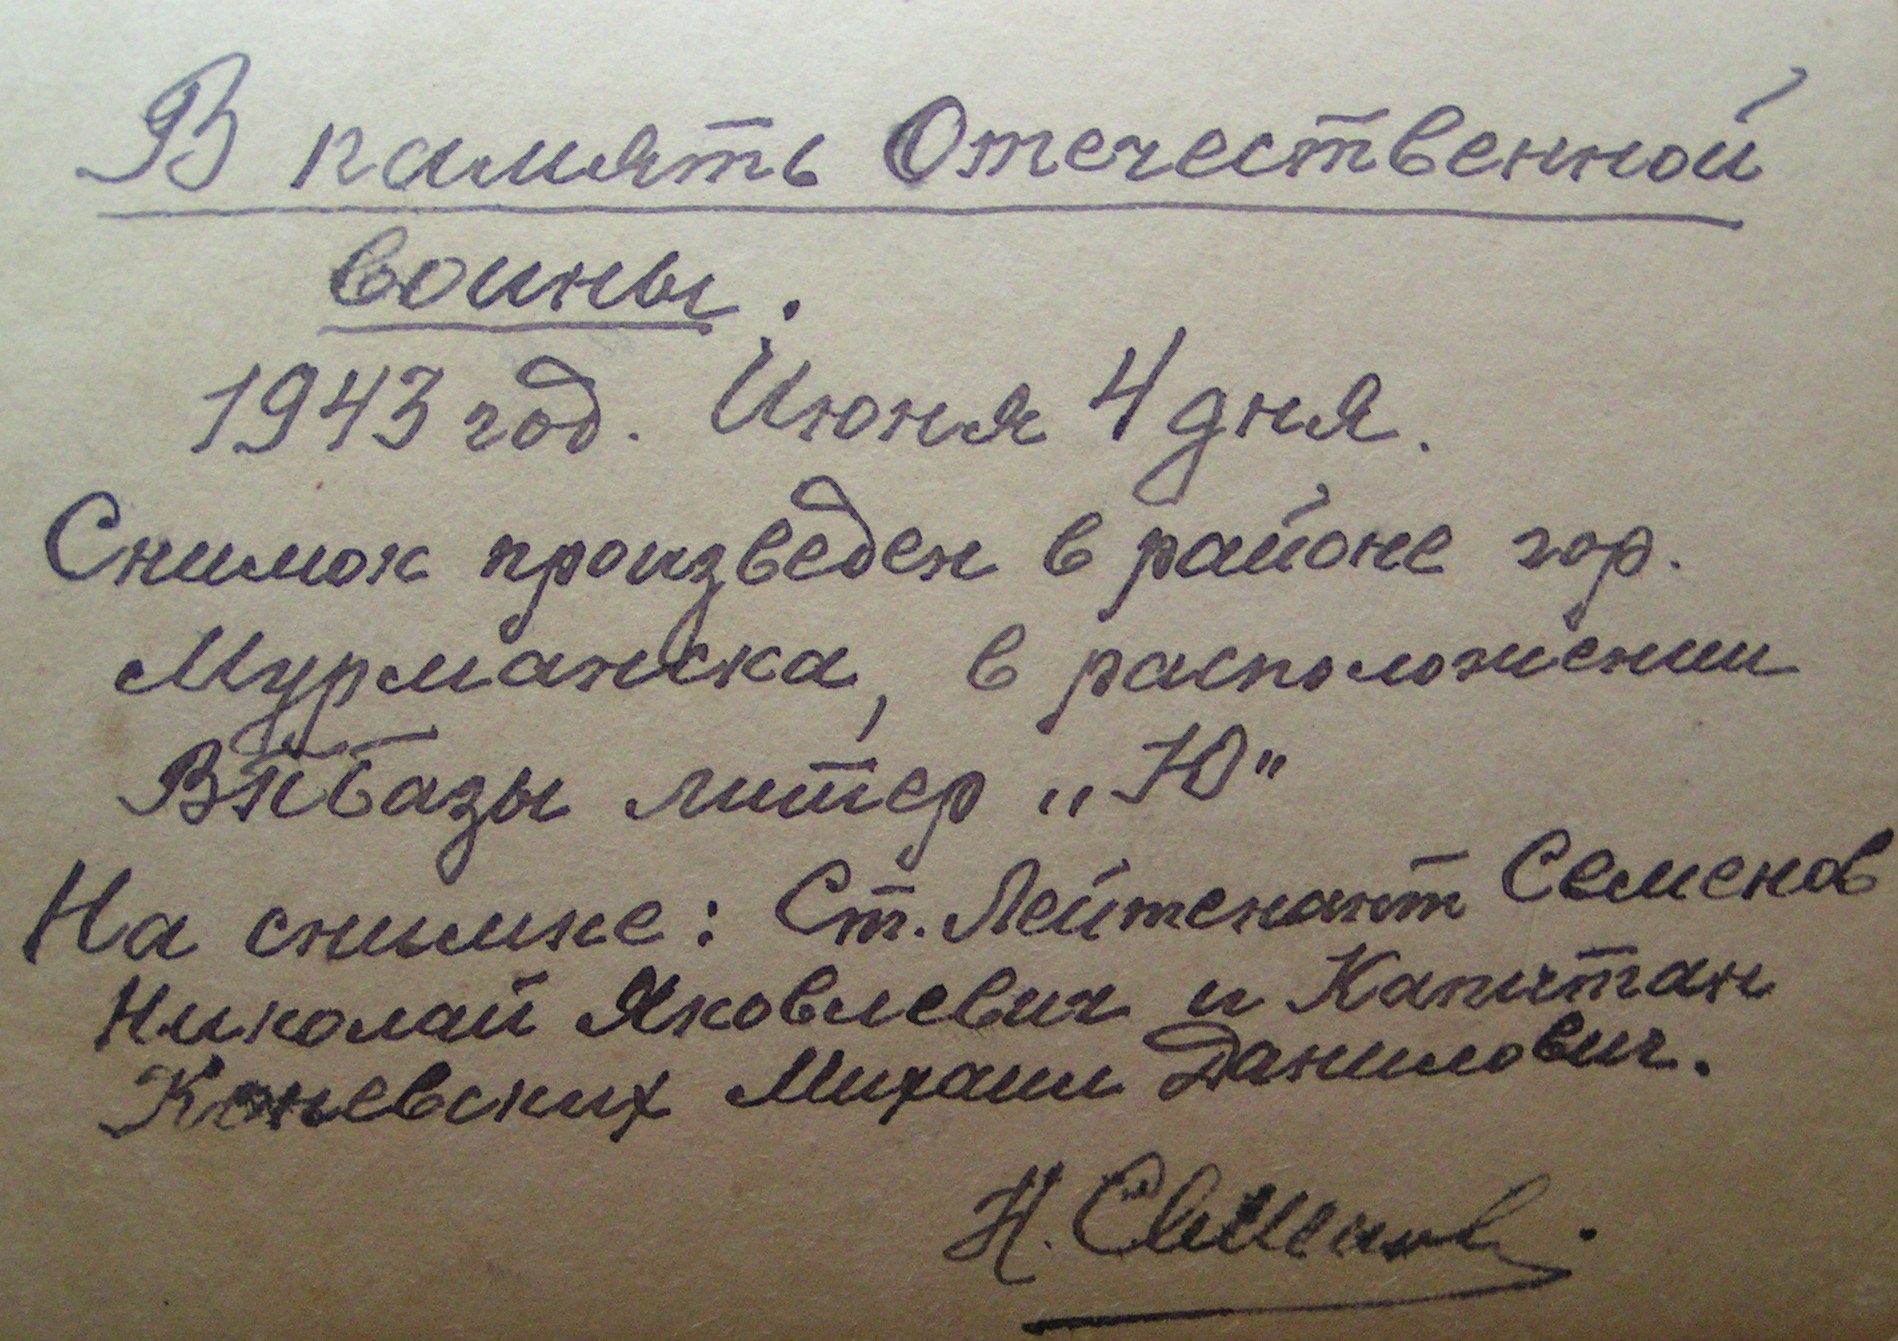 В память Отечественной
войны.
1943 год. Июня 4 дня.
Снимок произведен в районе гор.
Мурманска, в расположении
литер „Ю"
На снимке: Ст. Лейтенант Семенов
Николай Яковлевич и Капитан
Коневских Михаил Данилович.
Н. Семенов.